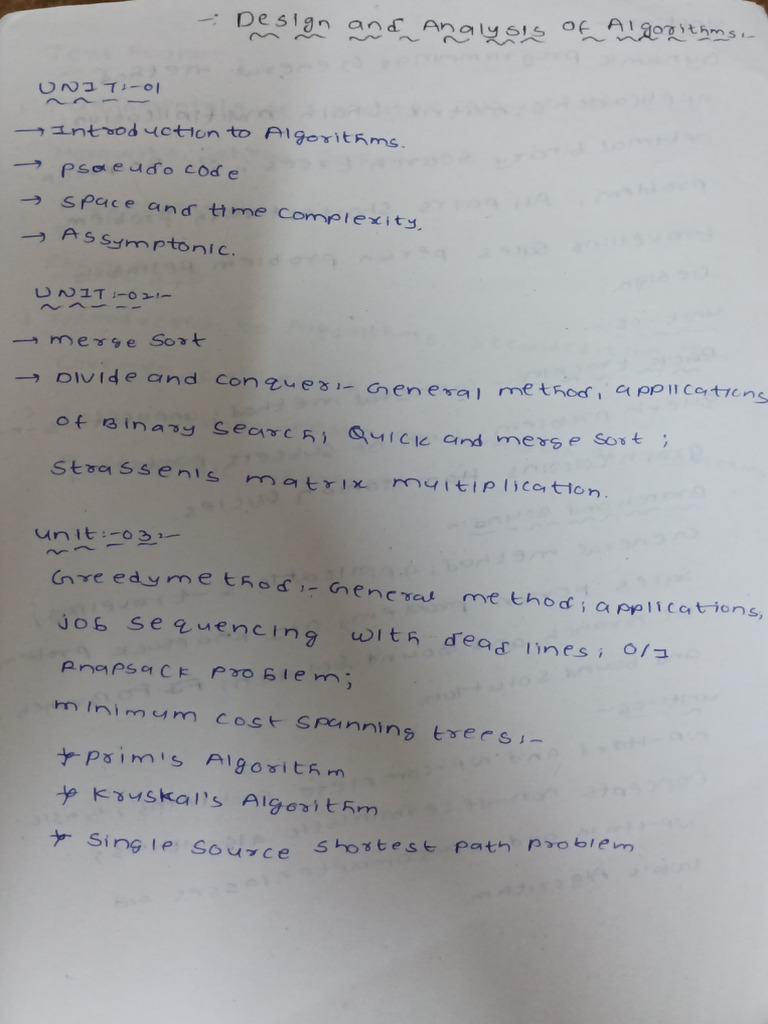 -: Design and Analysis of Algorithms:-
UNIT:-01
→ Introduction to Algorithms.
→ psaeudo code
→ space and time complexity.
→ Assymptonic.
UNIT:-02:-
→ merge sort
→ Divide and conquer:- General method, applications
of Binary search; Quick and merge sort;
Strassen's matrix multiplication.
unit:-03:-
Greedy method:- General method; applications,
job sequencing with dead lines; 0/1
knapsack problem;
minimum cost spanning trees:-
* prim's Algorithm
* Kruskal's Algorithm
* single source shortest path problem